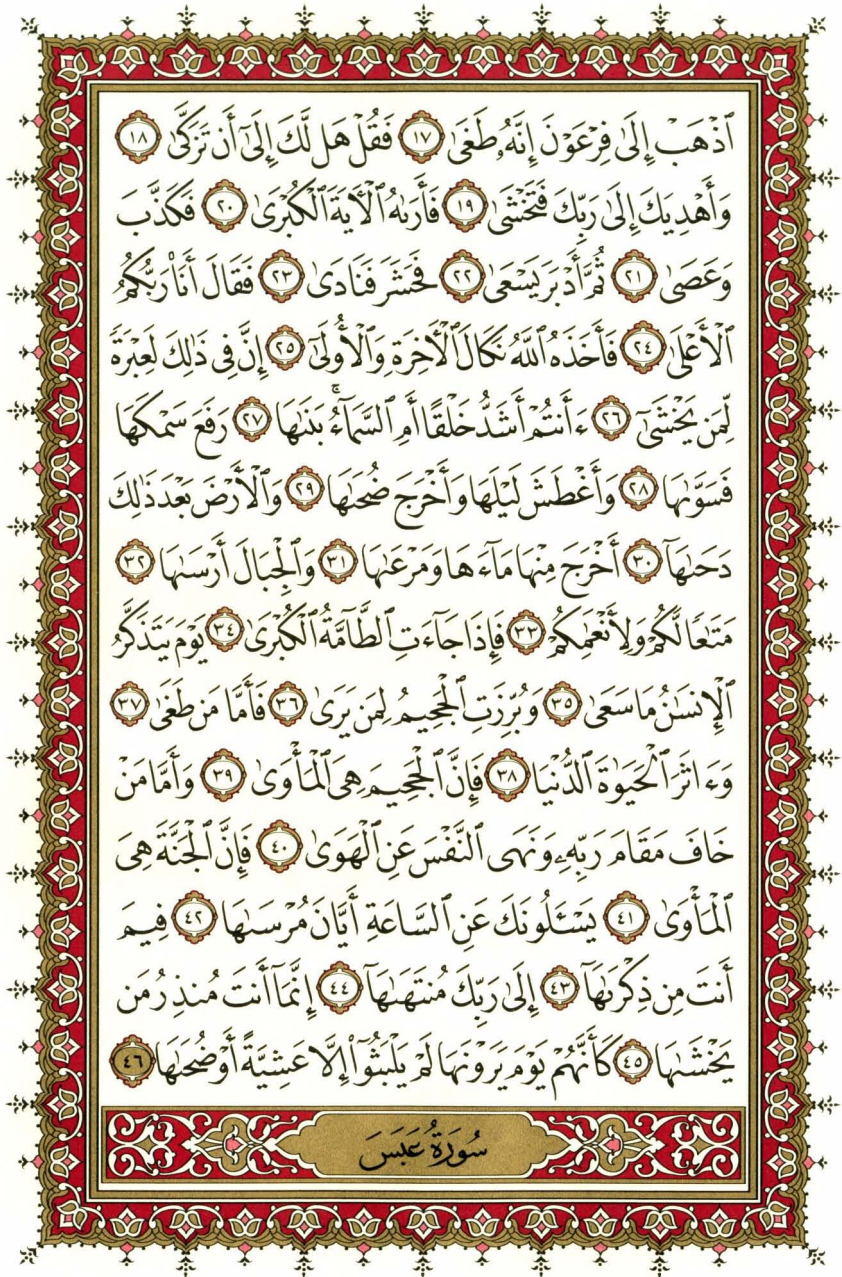 ٱذْهَبْ إِلَىٰ فِرْعَوْنَ إِنَّهُۥ طَغَىٰ ١٧ فَقُلْ هَل لَّكَ إِلَىٰٓ أَن تَزَكَّىٰ ١٨
وَأَهْدِيَكَ إِلَىٰ رَبِّكَ فَتَخْشَىٰ ١٩ فَأَرَىٰهُ ٱلْأَيَةَ ٱلْكُبْرَىٰ ٢٠ فَكَذَّبَ
وَعَصَىٰ ٢١ ثُمَّ أَدْبَرَ يَسْعَىٰ ٢٢ فَحَشَرَ فَنَادَىٰ ٢٣ فَقَالَ أَنَا۠ رَبُّكُمُ
ٱلْأَعْلَىٰ ٢٤ فَأَخَذَهُ ٱللَّهُ نَكَالَ ٱلْأَخِرَةِ وَٱلْأُولَىٰٓ ٢٥ إِنَّ فِى ذَٰلِكَ لَعِبْرَةً
لِّمَن يَخْشَىٰٓ ٢٦ ءَأَنتُمْ أَشَدُّ خَلْقًا أَمِ ٱلسَّمَآءُ ۚ بَنَىٰهَا ٢٧ رَفَعَ سَمْكَهَا
فَسَوَّىٰهَا ٢٨ وَأَغْطَشَ لَيْلَهَا وَأَخْرَجَ ضُحَىٰهَا ٢٩ وَٱلْأَرْضَ بَعْدَ ذَٰلِكَ
دَحَىٰهَآ ٣٠ أَخْرَجَ مِنْهَا مَآءَهَا وَمَرْعَىٰهَا ٣١ وَٱلْجِبَالَ أَرْسَىٰهَا ٣٢
مَتَٰعًا لَّكُمْ وَلِأَنْعَٰمِكُمْ ٣٣ فَإِذَا جَآءَتِ ٱلطَّآمَّةُ ٱلْكُبْرَىٰ ٣٤ يَوْمَ يَتَذَكَّرُ
ٱلْإِنسَٰنُ مَا سَعَىٰ ٣٥ وَبُرِّزَتِ ٱلْجَحِيمُ لِمَن يَرَىٰ ٣٦ فَأَمَّا مَن طَغَىٰ ٣٧
وَءَاثَرَ ٱلْحَيَوٰةَ ٱلدُّنْيَا ٣٨ فَإِنَّ ٱلْجَحِيمَ هِىَ ٱلْمَأْوَىٰ ٣٩ وَأَمَّا مَنْ
خَافَ مَقَامَ رَبِّهِۦ وَنَهَى ٱلنَّفْسَ عَنِ ٱلْهَوَىٰ ٤٠ فَإِنَّ ٱلْجَنَّةَ هِىَ
ٱلْمَأْوَىٰ ٤١ يَسْـَٔلُونَكَ عَنِ ٱلسَّاعَةِ أَيَّانَ مُرْسَىٰهَا ٤٢ فِيمَ
أَنتَ مِن ذِكْرَىٰهَآ ٤٣ إِلَىٰ رَبِّكَ مُنتَهَىٰهَآ ٤٤ إِنَّمَآ أَنتَ مُنذِرُ مَن
يَخْشَىٰهَا ٤٥ كَأَنَّهُمْ يَوْمَ يَرَوْنَهَا لَمْ يَلْبَثُوٓا۟ إِلَّا عَشِيَّةً أَوْ ضُحَىٰهَا ٤٦
سُورَةُ عَبَسَ